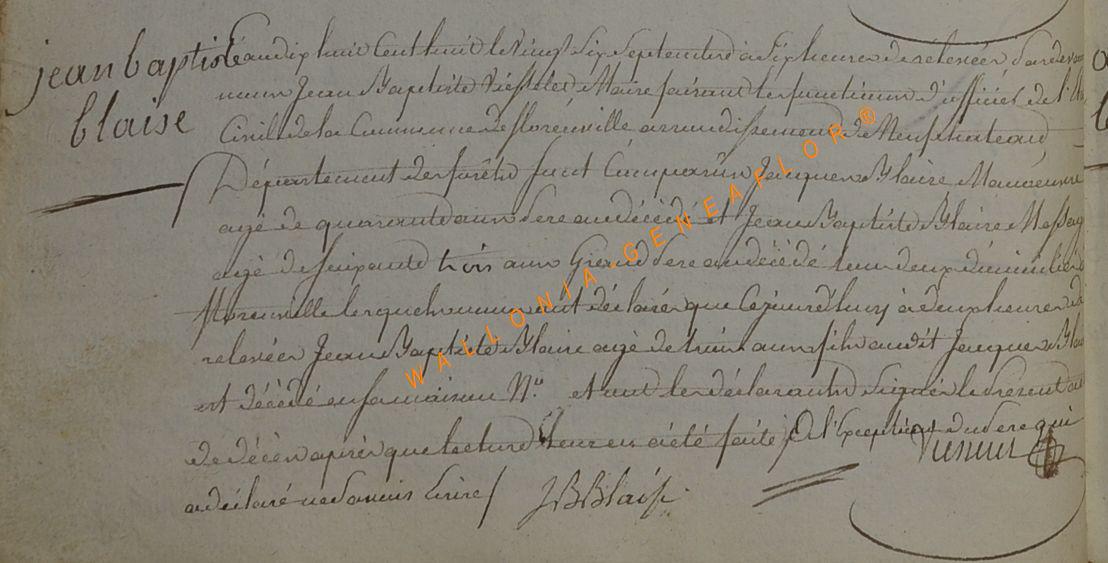 jean baptiste
blaise
L'an dix huit Cent huit le vingt six Septembre à six heures de relevées pardevant
nous Jean Baptiste Maire faisant les fonctions d'officier de l'
Civil de la Commune de florenville arrondissement de Neufchateau
Département des forêts sont Comparus Jacques Blaise Manoeuvre
agé de quarante ans Pere au décédé et Jean Baptiste Blaise
agé de soixante trois ans Grand Pere au décédé tous deux domiciliés
florenville lesquels nous ont déclaré que Cejourd'huy à deux heures de
relevées Jean Baptiste Blaise agé de trois ans fils audit Jacques
est décédé en sa maison N.° et ont les déclarants Signés le présent
de décès après que lecture leur en a été faite à l'Exception du Pere qui
a déclaré ne Savoir Ecrire
JBBlaise
WALLONIA-GENEAFLOR®